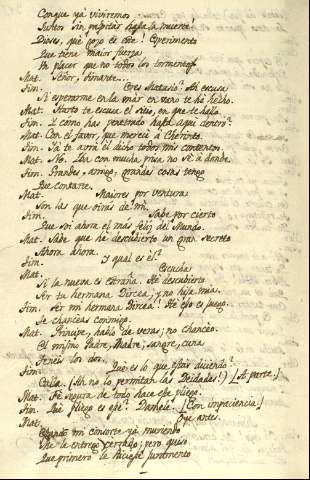 Conque ya viviremos
Juntos sin palpitar hasta la muerte?
Dioses, qué gozo es este! Esperimento
Que tiene maior fuerza
Un placer que no todos los tormentos.
Mat. Señor, Timante..
Tim. Eres Matusio? Ah escusa
Si esperarme en la mar en vano te ha hecho.
Mat. Harto te escusa el sitio, en que te hallo.
Tim. I como has penetrado hasta aqui dentro?
Mat. Con el favor, que merecí a Cherinto.
Tim. Ya te avrá él dicho todos mis contentos.
Mat. No. Iba con mucha prisa no sé a donde.
Tim. Grandes, amigo, grandes cosas tengo
Que contarte.
Mat. Maiores por ventura
Son las que oirás de mí.
Tim. Sabe por cierto
Que soi ahora el mas feliz del Mundo.
Mat. Sabe que he descubierto un gran secreto
Ahora ahora.
Tim. Y qual es él?
Mat. Escucha
Si la nueva es estraña. He descubierto
Ser tu hermana Dircea; y no hija mia.
Tim. Ser mi hermana Dircea! He eso es juego.
Te chanceas conmigo.
Mat. Principe, hablo de veras; no chanceo.
El mismo Padre, Madre, sangre, cuna
Teneis los dos.
Tim. Qué es lo que estás diciendo?
Calla. (Ah no lo permitan las Deidades!) [A parte.]
Mat. Fe segura de todo hace este pliego.
Tim. Qué pliego es ese? Damele. [Con impaciencia.]
Mat. Oye antes.
Quando mi consorte ya muriendo
Me le entregó cerrado; pero quiso
Que primero la hiciese juramento